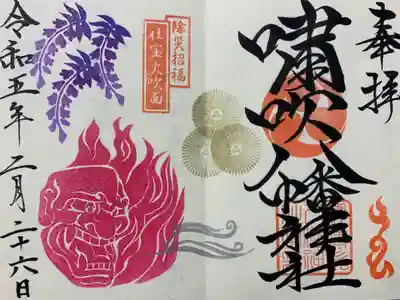 奉拝
嘯吹八幡神社
除災招福
社宝火吹面
令和五年二月二十六日